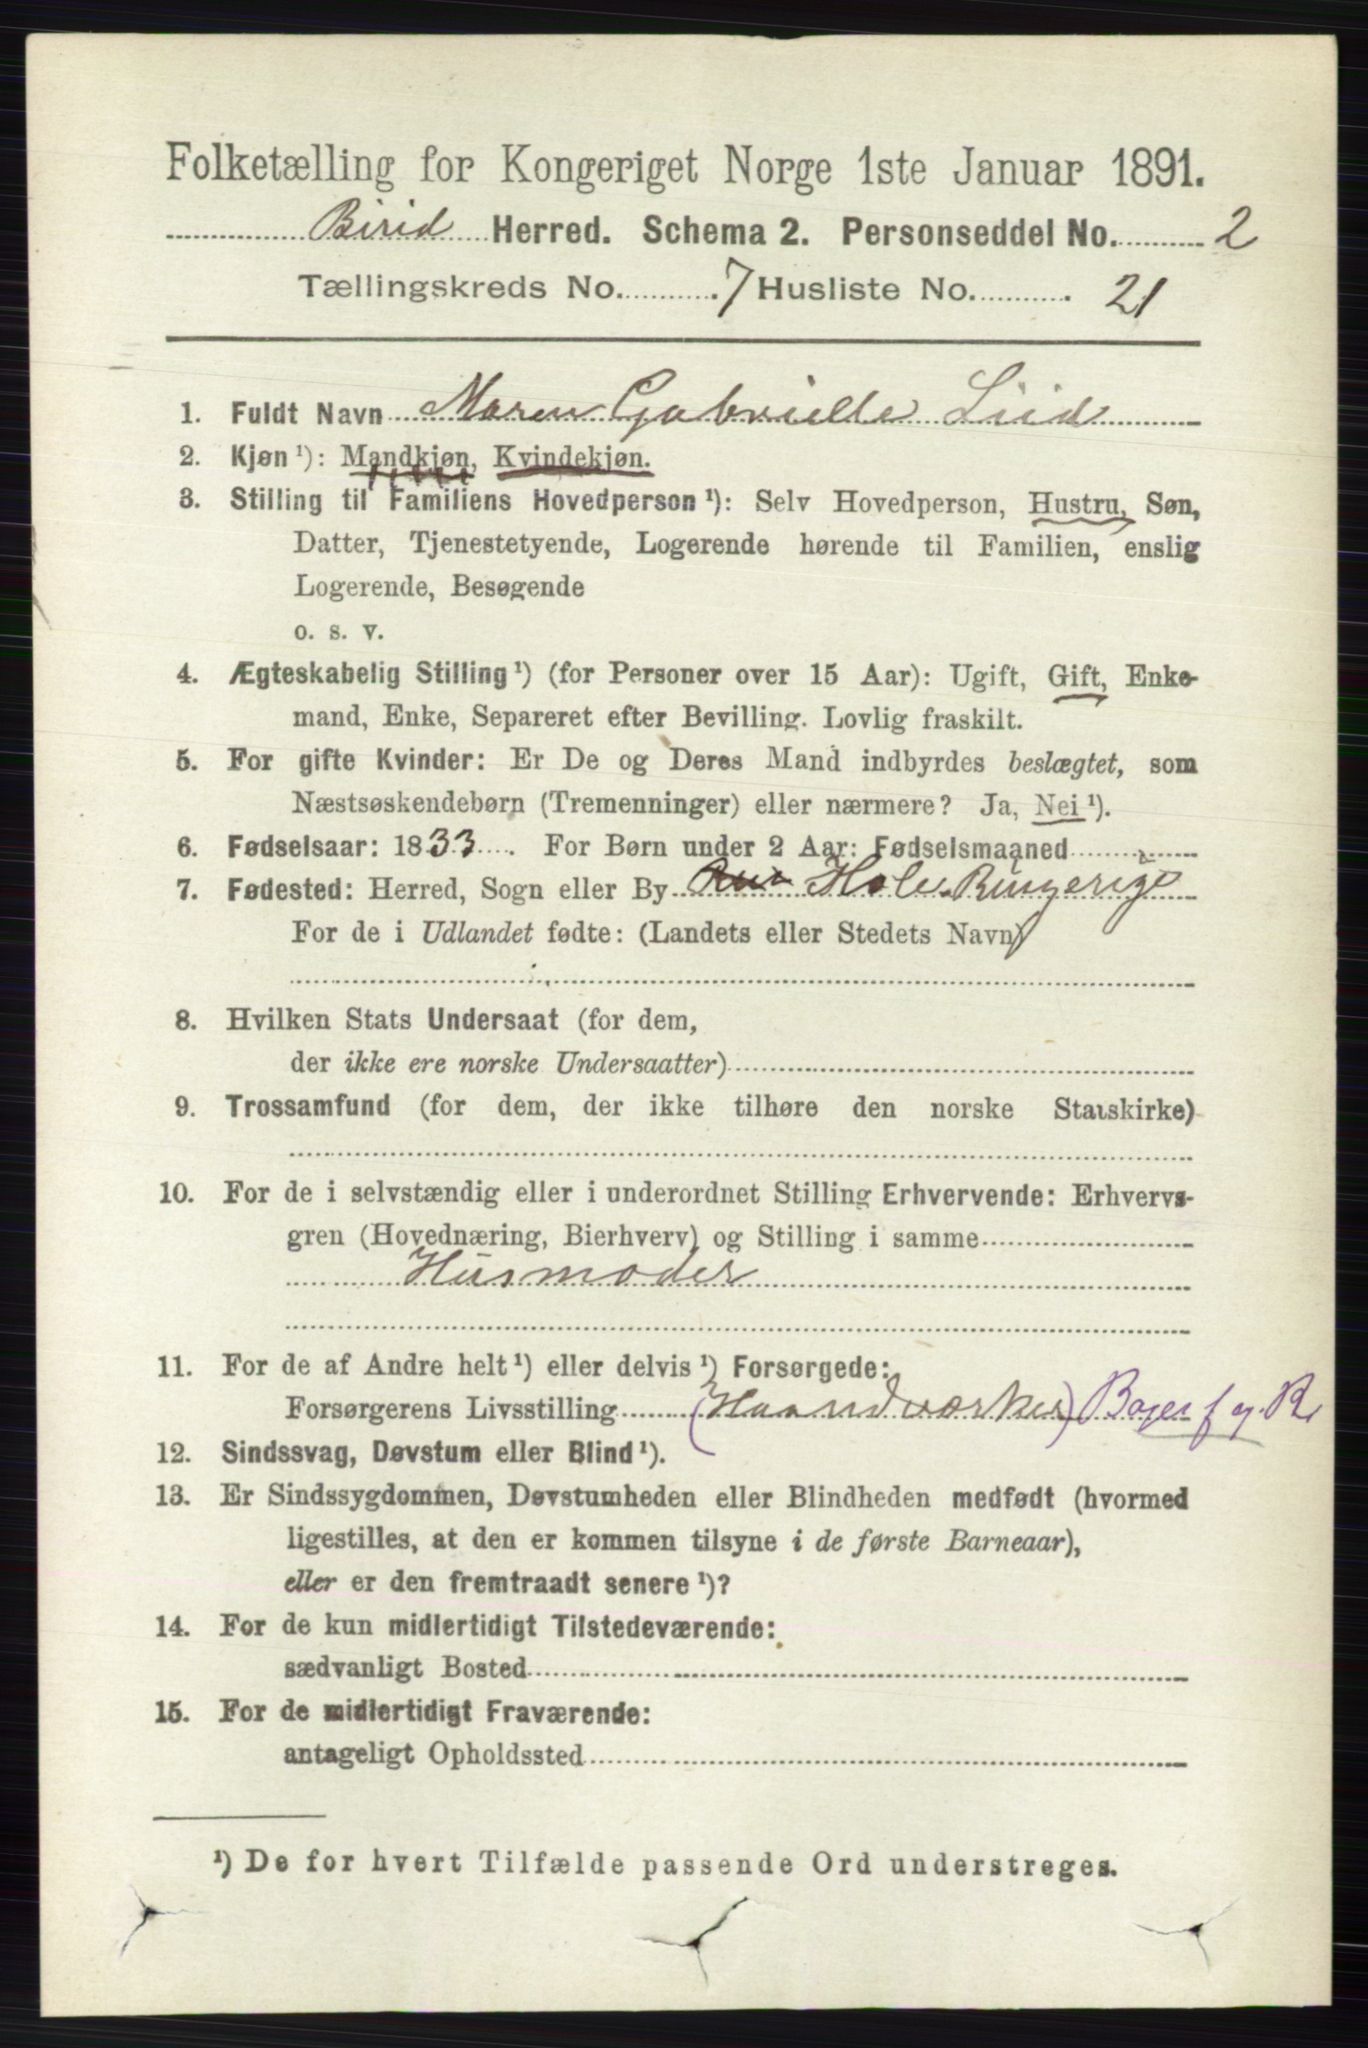 Folketælling for Kongeriget Norge 1ste Januar 1891.
Birid Herred. Schema 2. Personseddel No. 2
Tællingskreds No. 7 Husliste No. 21
1. Fuldt Navn Maren Gabrielle Liid
2. Kjøn¹): Mandkjøn, Kvindekjøn.
3. Stilling til Familiens Hovedperson¹): Selv Hovedperson, Hustru, Søn,
Datter, Tjenestetyende, Logerende hørende til Familien, enslig
Logerende, Besøgende
o. s. v.
4. Ægteskabelig Stilling¹) (for Personer over 15 Aar): Ugift, Gift, Enke-
mand, Enke, Separeret efter Bevilling. Lovlig fraskilt.
5. For gifte Kvinder: Er De og Deres Mand indbyrdes beslægtet, som
Næstsøskendebørn (Tremenninger) eller nærmere? Ja, Nei¹).
6. Fødselsaar: 1833. For Børn under 2 Aar: Fødselsmaaned
7. Fødested: Herred, Sogn eller By Hole Ringerige
For de i Udlandet fødte: (Landets eller Stedets Navn)
8. Hvilken Stats Undersaat (for dem,
der ikke ere norske Undersaatter)
9. Trossamfund (for dem, der ikke tilhøre den norske Statskirke)
10. For de i selvstændig eller i underordnet Stilling Erhvervende: Erhvervs-
gren (Hovednæring, Bierhverv) og Stilling i samme
Husmoder
11. For de af Andre helt¹) eller delvis¹) Forsørgede:
Forsørgerens Livsstilling (Haandværker)
12. Sindssvag, Døvstum eller Blind¹).
13. Er Sindssygdommen, Døvstumheden eller Blindheden medfødt (hvormed
ligestilles, at den er kommen tilsyne i de første Barneaar),
eller er den fremtraadt senere¹)?
14. For de kun midlertidigt Tilstedeværende:
sædvanligt Bosted
15. For de midlertidigt Fraværende:
antageligt Opholdssted
¹) De for hvert Tilfælde passende Ord understreges.